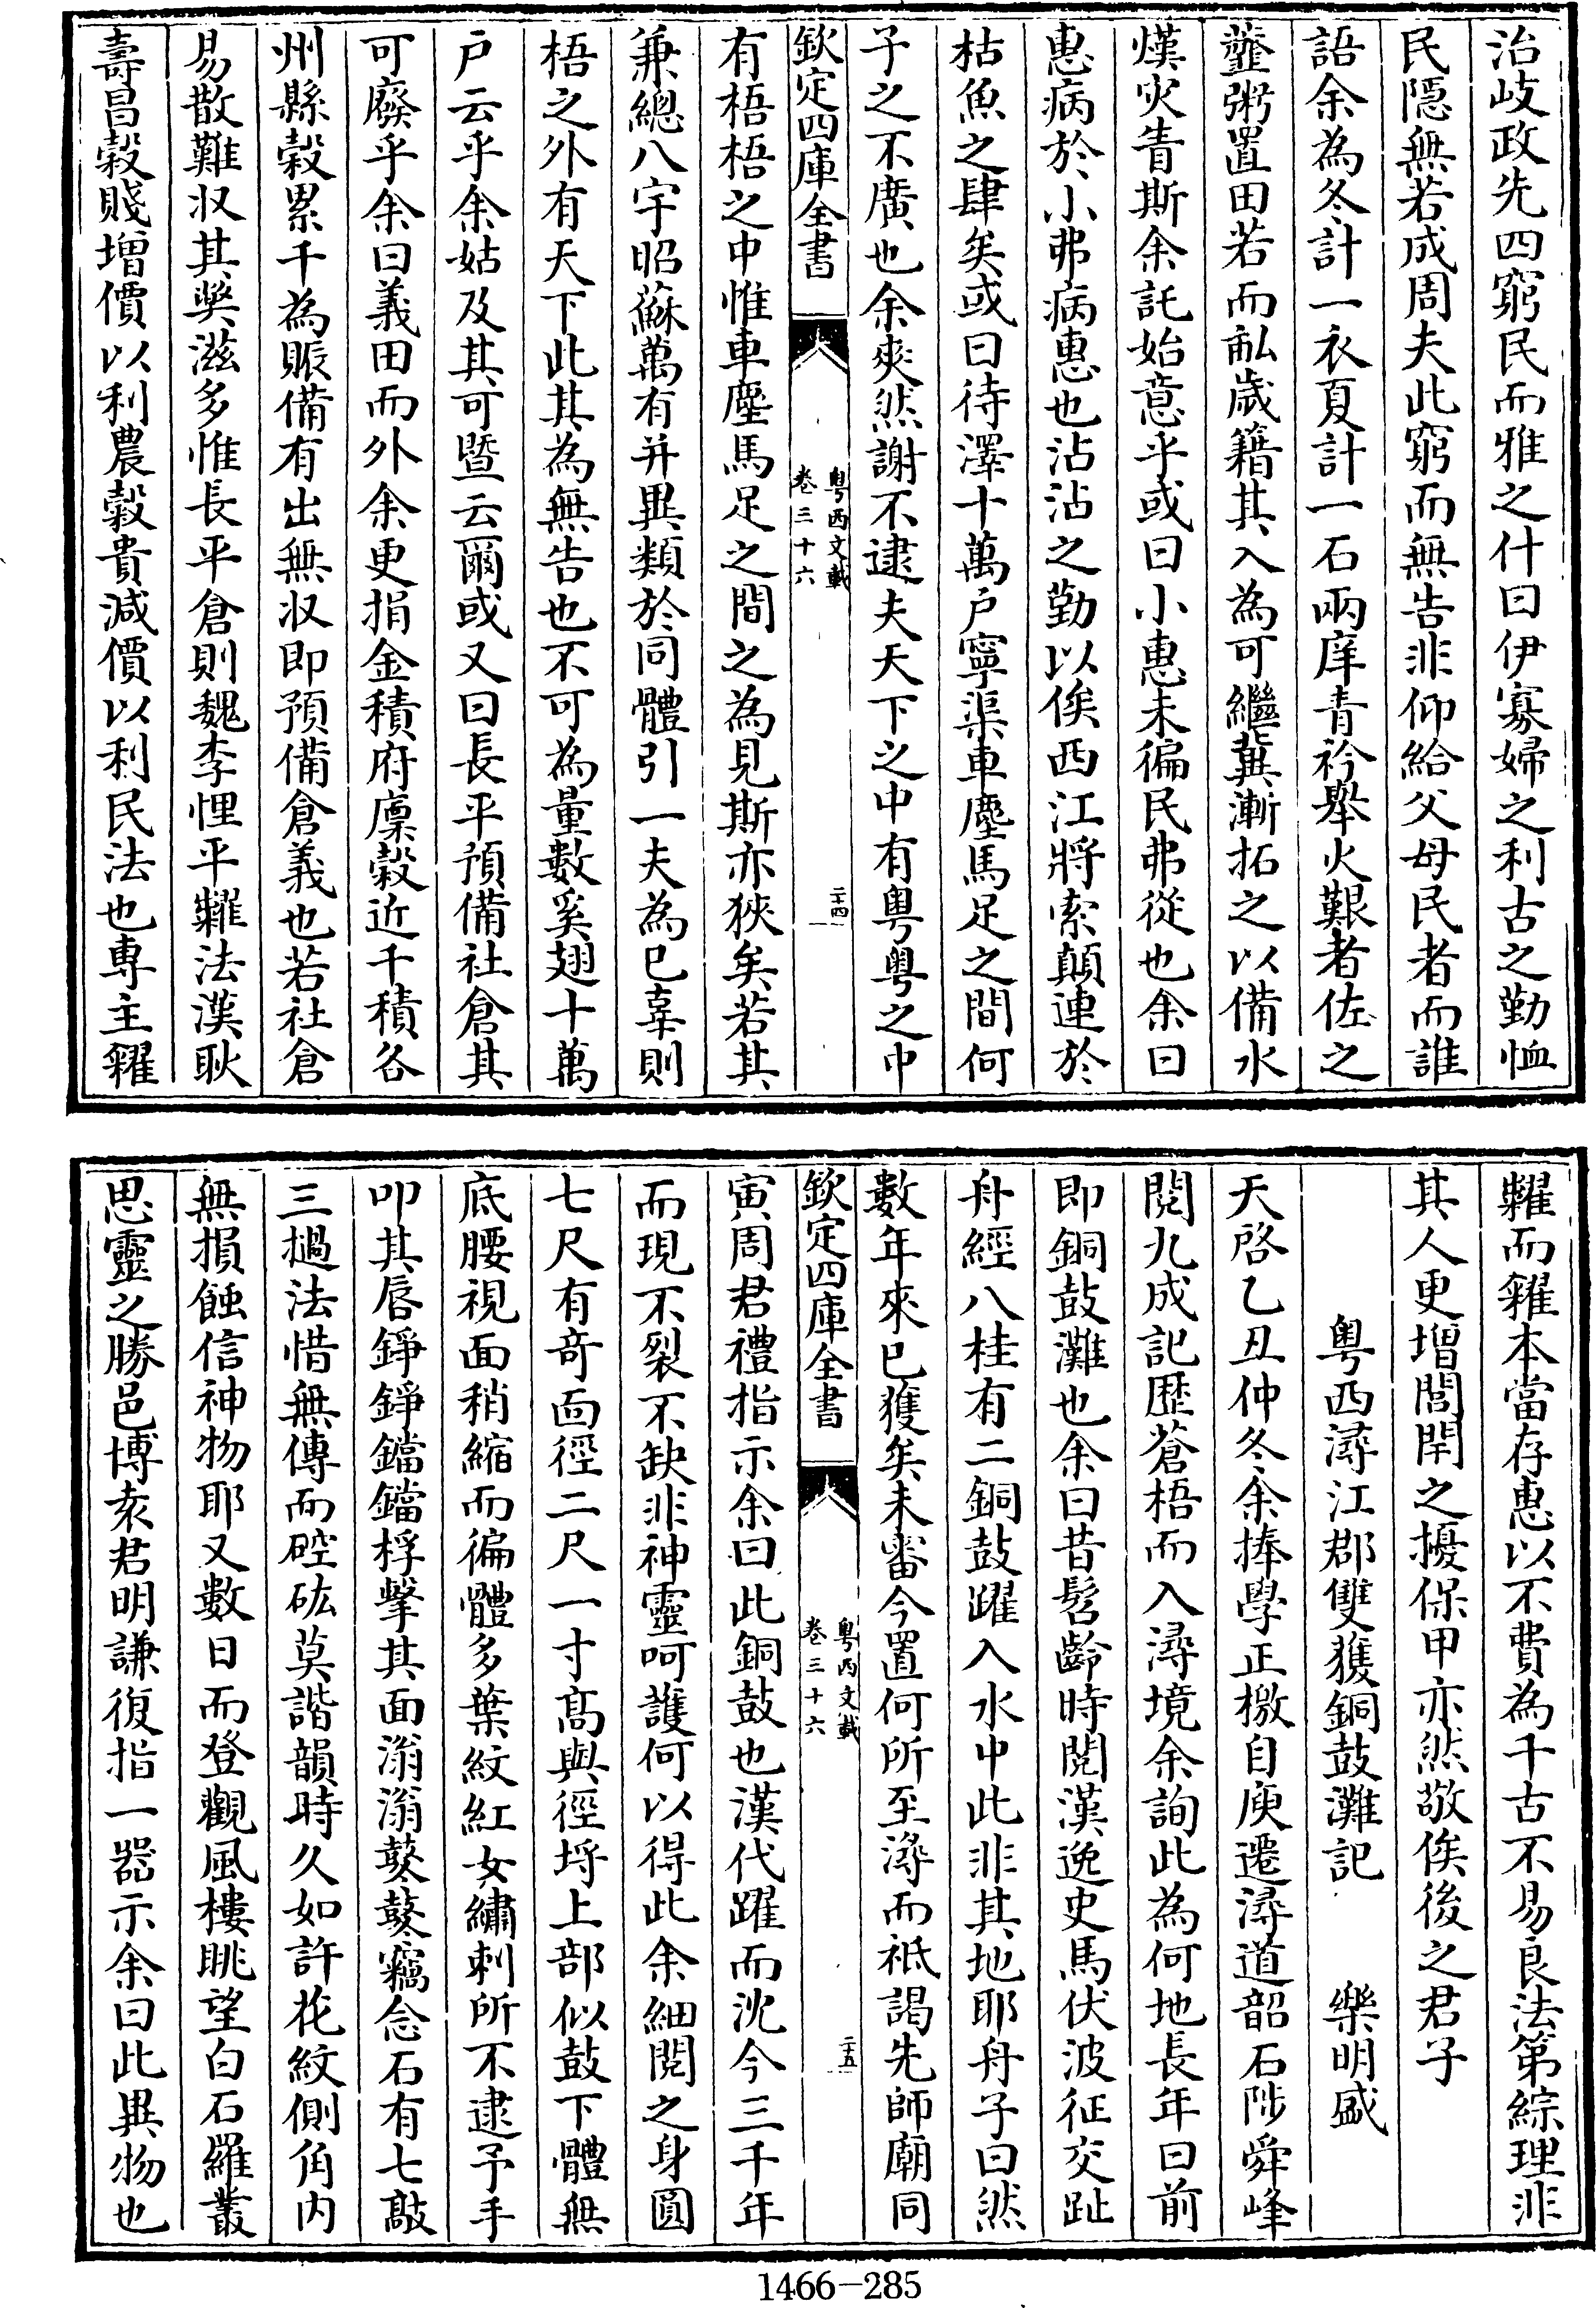 治岐政先四窮民而雅之什曰伊寡婦之利古之勤恤
民隱無若成周夫此窮而無告非仰給父母民者而誰
語余為冬計一衣夏計一石兩庠青衿舉火艱者佐之
虀粥置田若而畝歲籍其入為可繼冀漸拓之以備水
熯灾眚斯余託始意乎或曰小惠未徧民弗從也余曰
惠病於小弗病惠也沾沾之勤以俟西江將索顛連於
枯魚之肆矣或曰待澤十萬户寧渠車塵馬足之間何
子之不廣也余爽然謝不逮夫天下之中有粵粵之中
欽定四庫全書
粵西文載
卷三十六
二十四
有梧梧之中惟車塵馬足之間之為見斯亦狹矣若其
兼總八宇昭蘇萬有并異類於同體引一夫為已辜則
梧之外有天下此其為無告也不可為量數奚翅十萬
户云乎余姑及其可暨云爾或又曰長平預備社倉其
可廢乎余曰義田而外余更捐金積府廩穀近千積各
州縣穀累千為賑備有出無收即預備倉義也若社倉
易散難收其獘滋多惟長平倉則魏李悝平糶法漢耿
壽昌穀賤增價以利農穀貴減價以利民法也専主糴
糶而糴本當存惠以不費為千古不易良法第綜理非
其人更增閭閈之擾保甲亦然敬俟後之君子
粵西潯江郡雙獲銅鼓灘記　樂明盛
天啓乙丑仲冬余捧學正檄自庾遷潯道韶石陟舜峰
閱九成記歴蒼梧而入潯境余詢此為何地長年曰前
即銅鼓灘也余曰昔髫齡時閱漢逸史馬伏波征交趾
舟經八桂有二銅鼓躍入水中此非其地耶舟子曰然
數年來已獲矣未審今置何所至潯而祇謁先師廟同
欽定四庫全書
粵西文載
卷三十六
二十五
寅周君禮指示余曰此銅鼓也漢代躍而沈今三千年
而現不裂不缺非神靈呵護何以得此余細閱之身圓
七尺有竒面徑二尺一寸髙與徑埒上部似鼓下體無
底腰視面稍縮而徧體多葉紋紅女繡刺所不逮予手
叩其唇錚錚鐺鐺桴擊其面滃滃鼕鼕竊念石有七敲
三撾法惜無傳而硿硡莫諧韻時久如許花紋側角内
無損蝕信神物耶又數日而登觀風樓眺望白石羅叢
思靈之勝邑博袁君明謙復指一器示余曰此異物也
1466-285